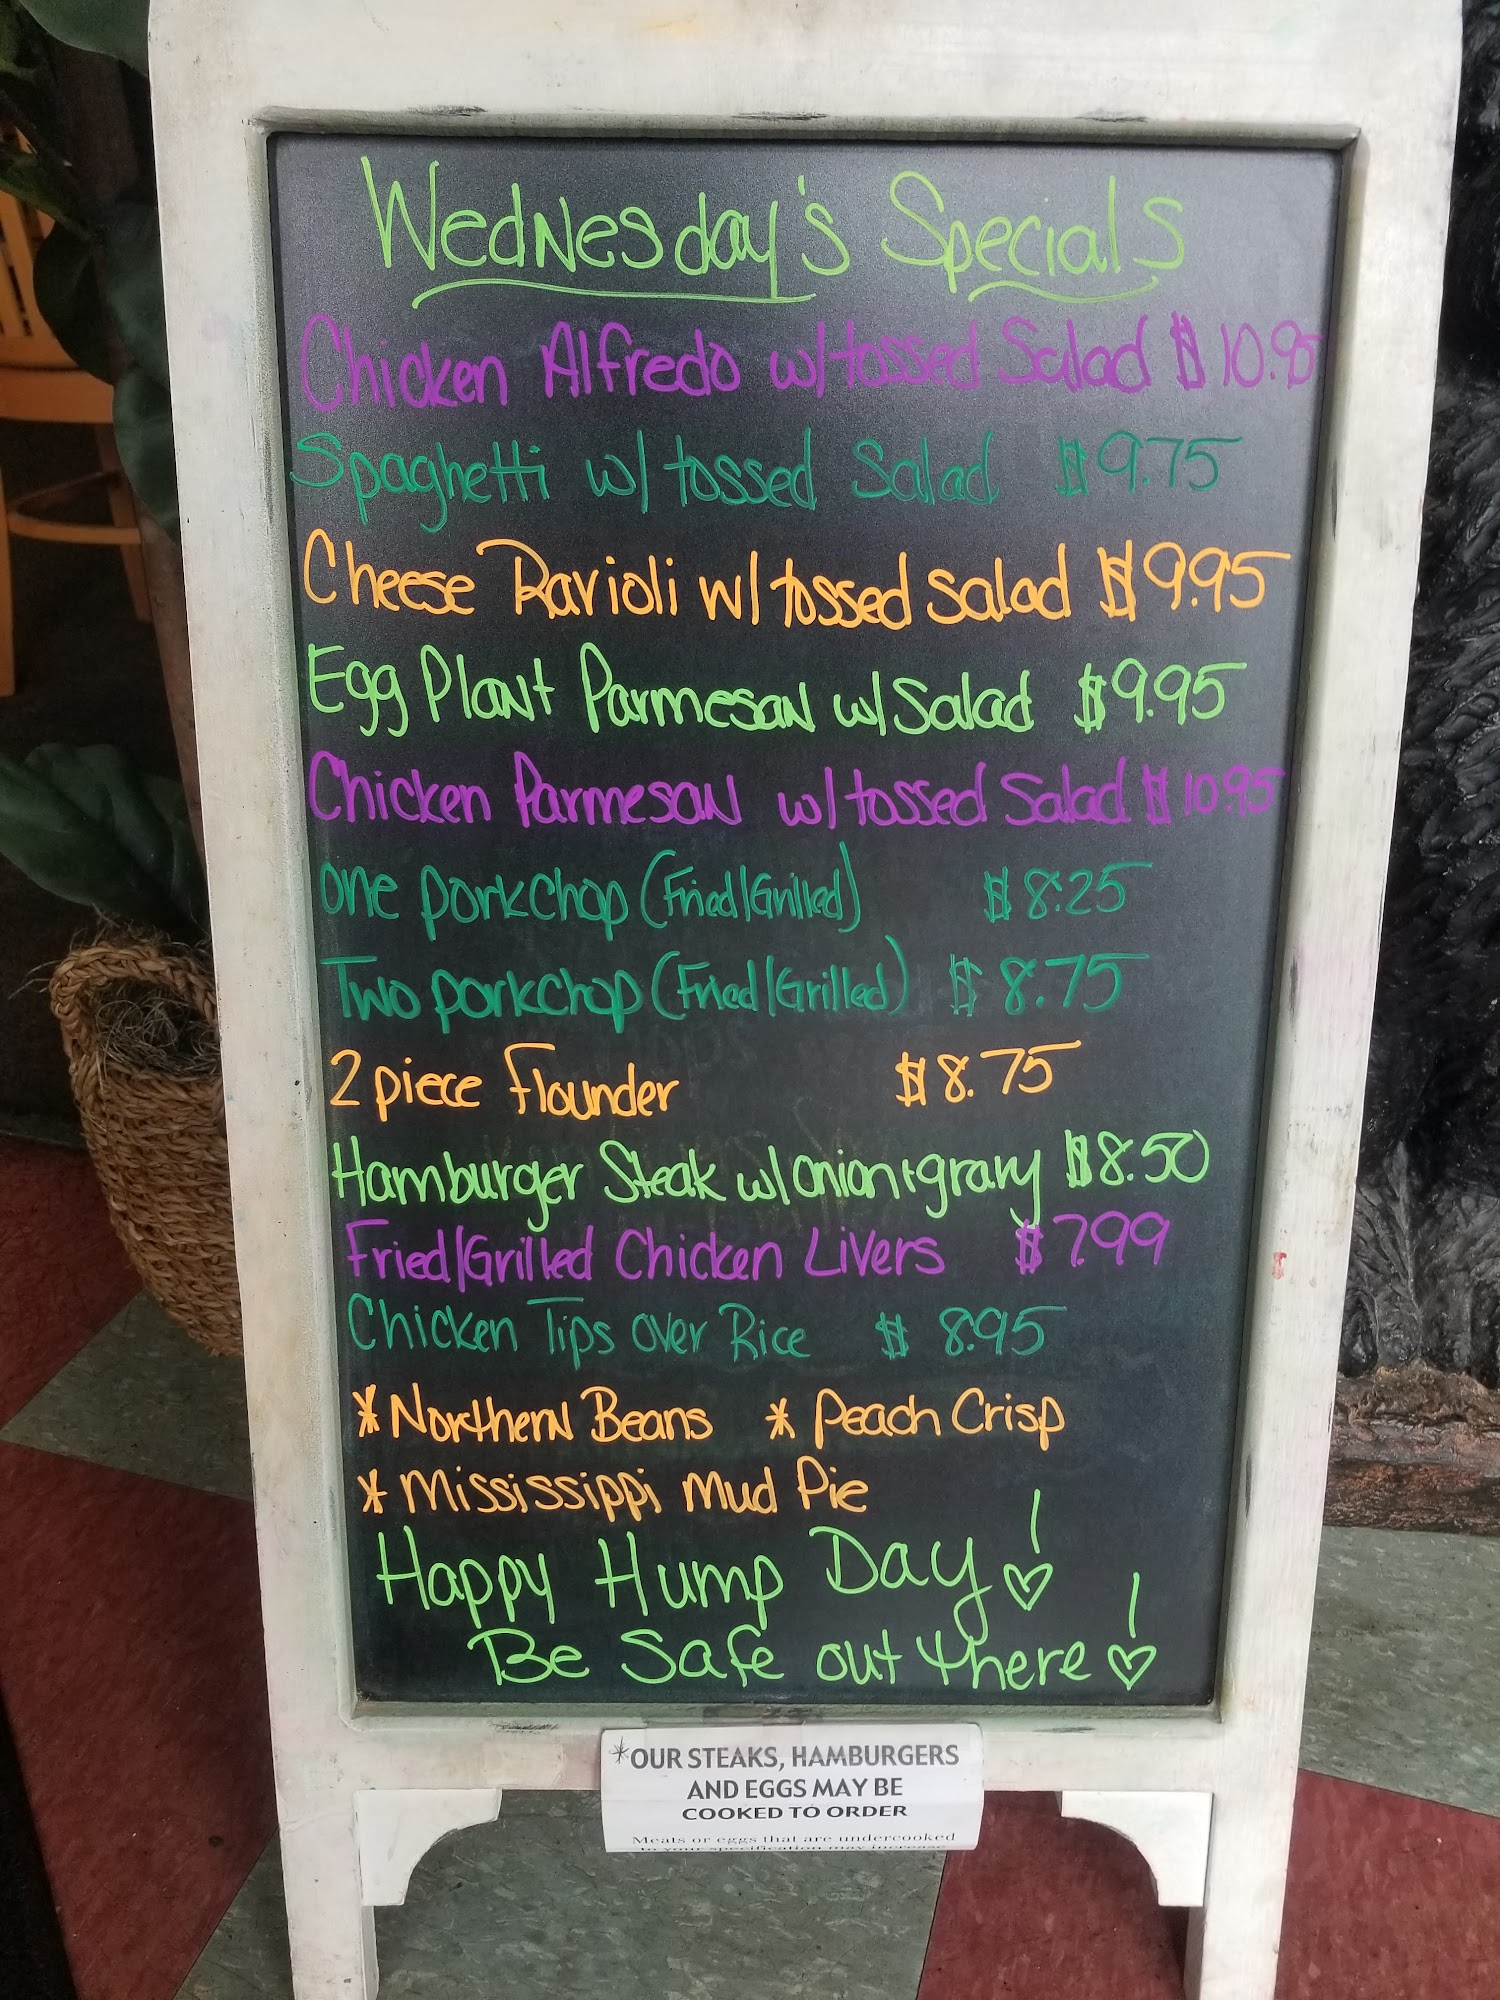 Wednesday's Specials
Chicken Alfredo w/tossed Salad $10.95
Spaghetti w/ tossed Salad $9.75
Cheese Ravioli w/ tossed salad $9.95
Egg Plant Parmesan w/ Salad $9.95
Chicken Parmesan w/ tossed Salad $10.95
One porkchop (Fried/Grilled) $8.25
Two porkchop (Fried/Grilled) $8.75
2 piece Flounder $8.75
Hamburger Steak w/ onion + gravy $8.50
Fried/Grilled Chicken Livers $7.99
Chicken Tips over Rice $8.95
*Northern Beans * Peach Crisp
* Mississippi Mud Pie
Happy Hump Day!
Be Safe out there!
*OUR STEAKS, HAMBURGERS
AND EGGS MAY BE
COOKED TO ORDER
Meats or eggs that are undercooked
to your specification may increase